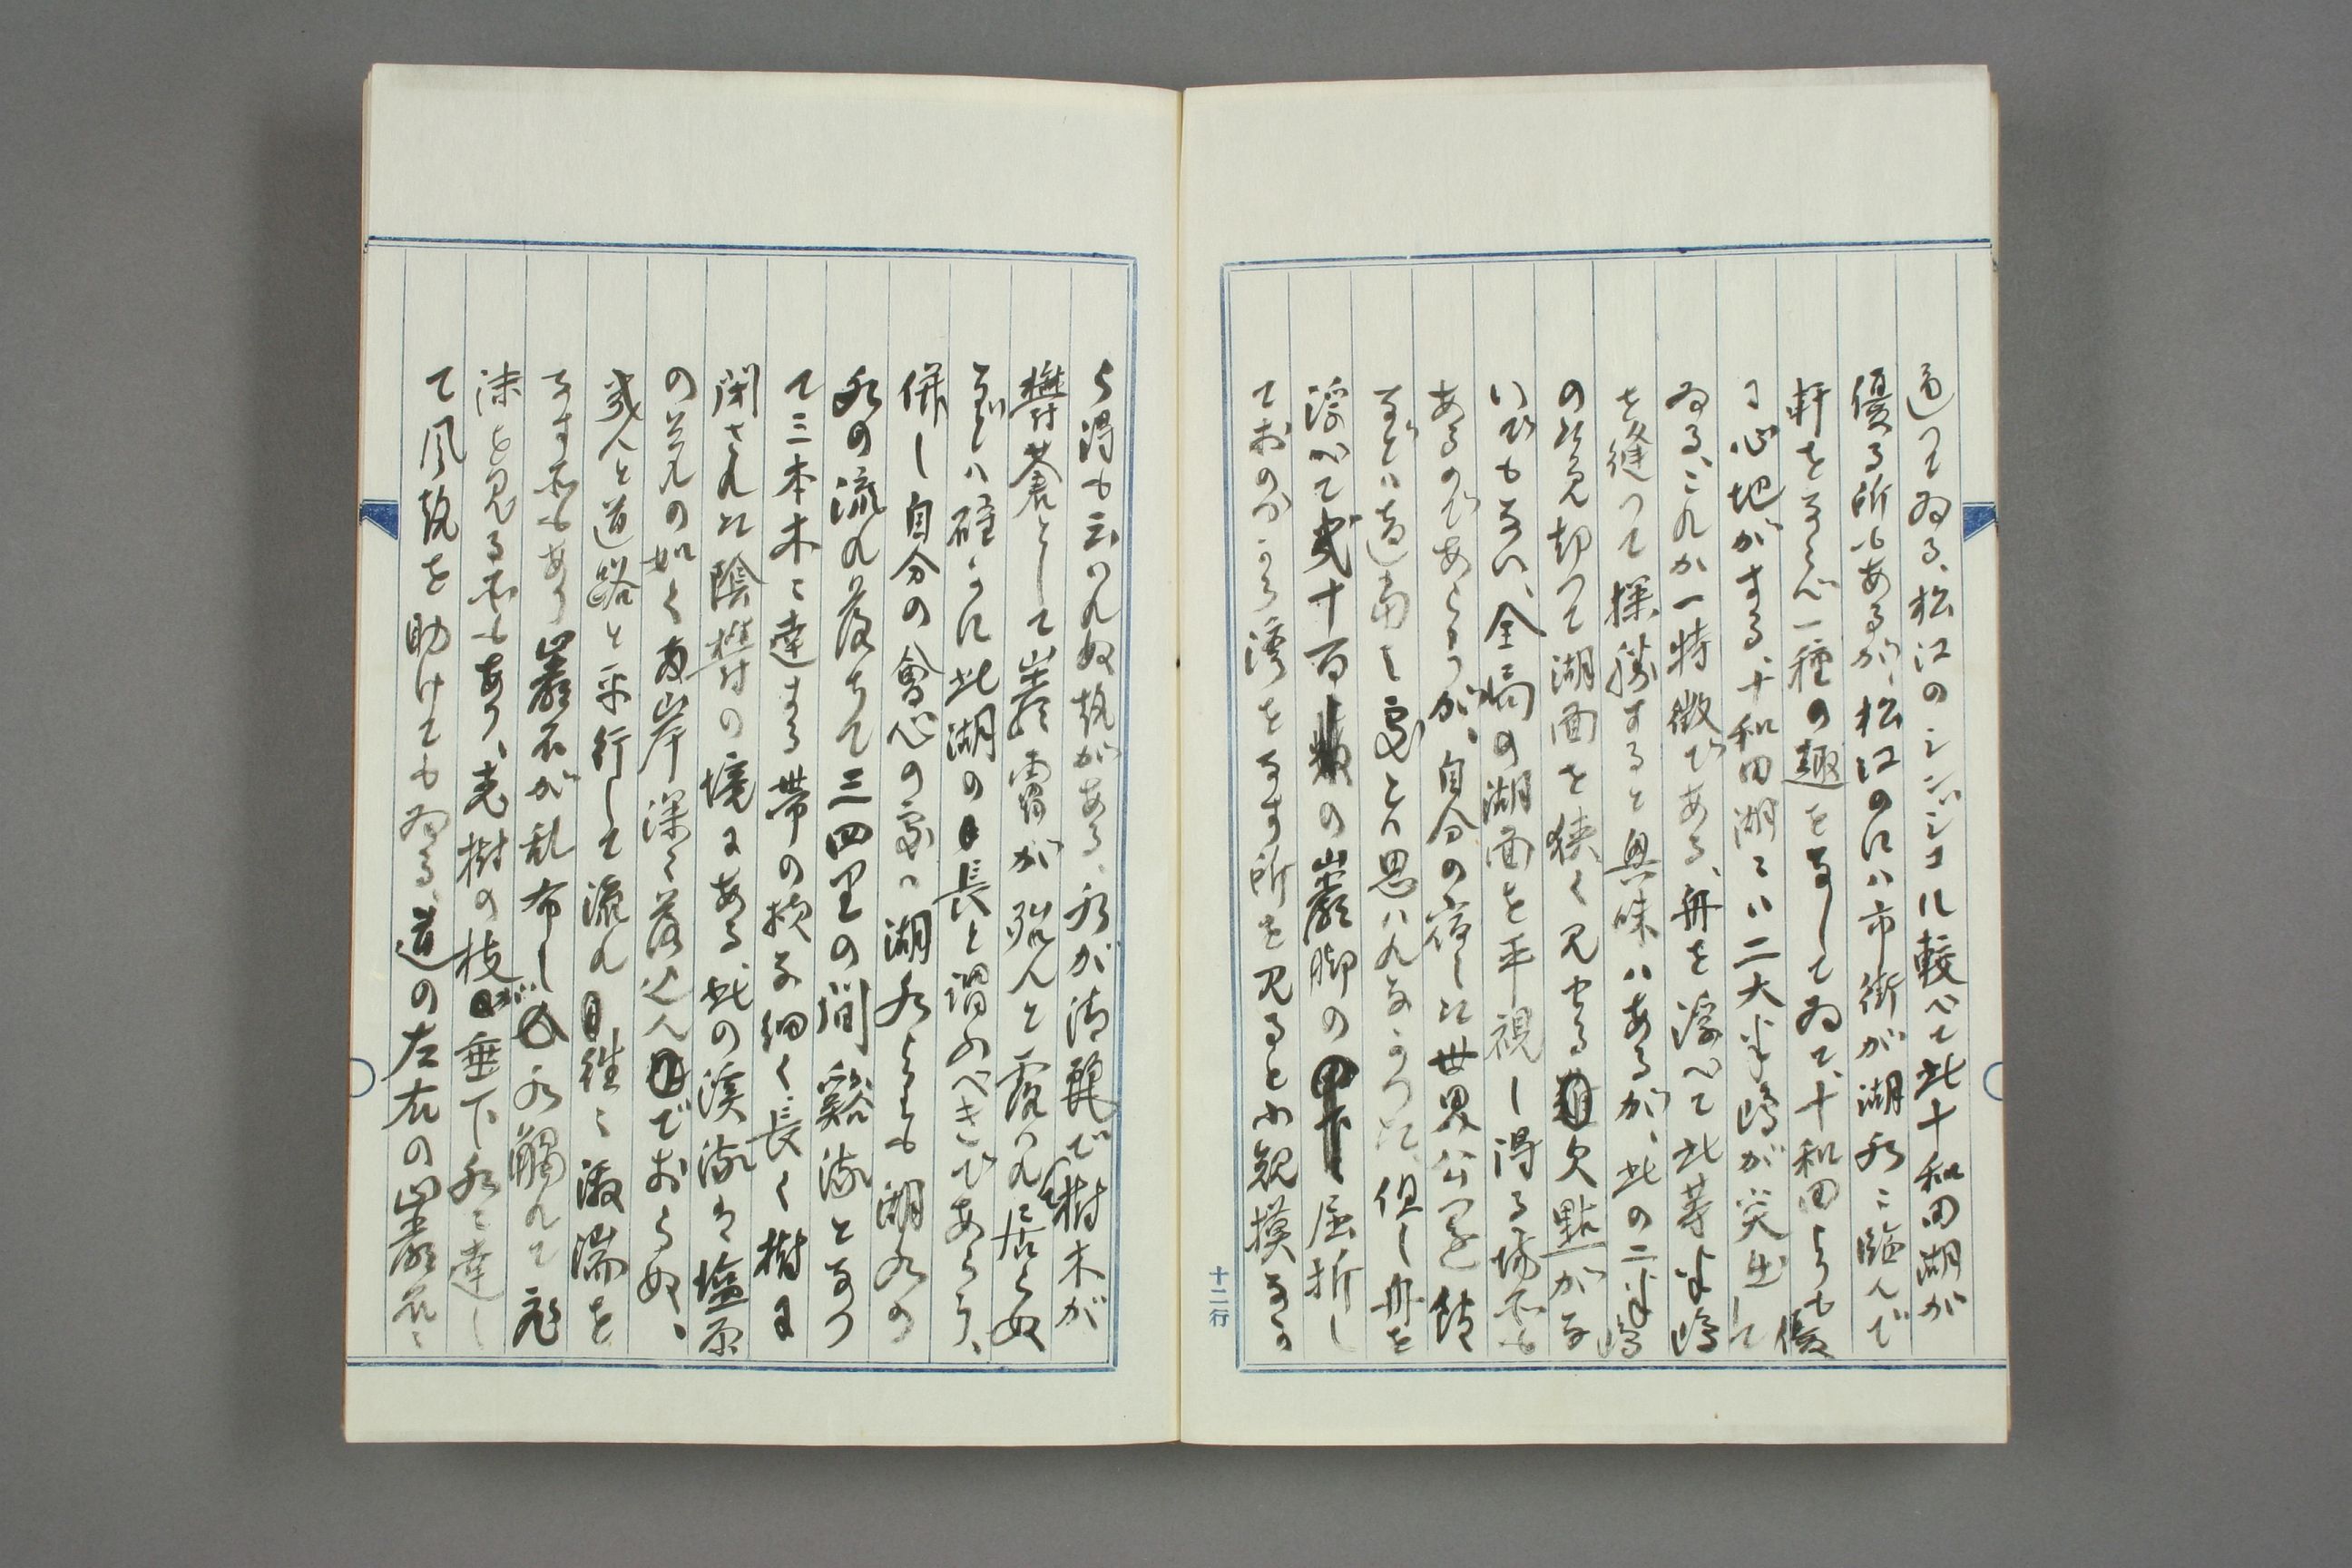 適つてゐる、松江のシンジコに較べて此十和田湖が
優る所もあるが、松江のには市街が湖水に臨んで
軒をならべ一種の趣をなしてゐて、十和田よりも優
に心地がする、十和田湖には二大半嶋が突出して
ゐる、これが一特徴である、舟を浮べて此等半嶋
を縫つて探勝すると興味はあるが、此の二半嶋
の為め却つて湖面を狭く見せる欠點がな
いでもない、全幅の湖面を平視し得る場所も
あるのであらうが、自分の宿した世界公園館
などは適当し処とは思はれなかつた、但し舟を
浮べて弐十百の巖脚の屈折し
ておのづから湾をなす所を見ると小規模なか
十二行
ら得も云はれぬ趣がある、水が清麗で樹木が
欝蒼として巖骨が殆んと露はれ居らぬ
などは確かに此湖の長と謂ふべきであらう、
併し自分の會心の処は湖水よりも湖水の
水の流れ落ちて三四里の間谿流となつ
て三本木に達する帯の様な細く長く樹に
閉された陰欝の境にある、此の渓流は塩原
の其れの如く両岸深く落込んでおらぬ、
幾んと道路と平行して流れ往々激湍を
なす所もあり巖石が乱布し水觸れて飛
沫を見る所もあり、老樹の枝が垂下水に達し
て風趣を助けてもゐる、道の左右の巖石に